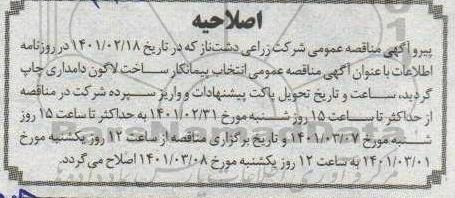 اصلاحیه
پیرو آگهی مناقصه عمومی شرکت زراعی دشت‌ناز که در تاریخ ۱۴۰۱/۰۲/۱۸ در روزنامه
اطلاعات با عنوان آگهی مناقصه عمومی انتخاب پیمانکار ساخت لاگون دامداری چاپ
گردید، ساعت و تاریخ تحویل پاکت پیشنهادات و واریز سپرده شرکت در مناقصه
از حداکثر تا ساعت ۱۵ روز شنبه مورخ ۱۴۰۱/۰۲/۳۱ به حداکثر تا ساعت ۱۵ روز
شنبه مورخ ۱۴۰۱/۰۳/۰۷ و تاریخ برگزاری مناقصه از ساعت ۱۲ روز یکشنبه مورخ
۱۴۰۱/۰۳/۰۱ به ساعت ۱۲ روز یکشنبه مورخ ۱۴۰۱/۰۳/۰۸ اصلاح می‌گردد.